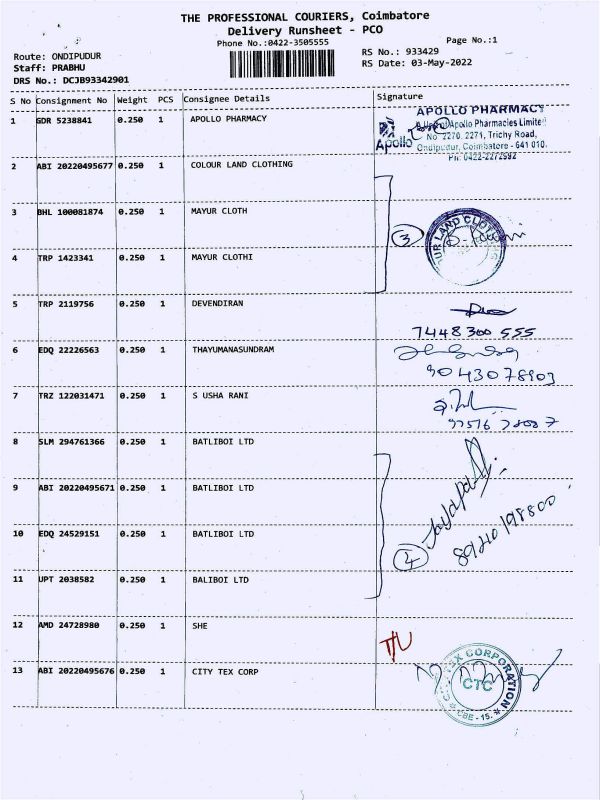 THE PROFESSIONAL COURIERS, Coimbatore
Delivery Runsheet - PCO
Phone No.:0422-3505555
Page No.:1
Route: ONDIPUDUR
RS No.: 933429
Staff: PRABHU
RS Date: 03-May-2022
DRS No.: DCJB93342901
S No Consignment No Weight PCS Consignee Details Signature
1 GDR 5238841 0.250 1 APOLLO PHARMACY
APOLLO PHARMACY
Apollo Pharmacies Limited
No 2270, 2271, Trichy Road,
Apollo Ondipudur, Coimbatore - 641 010.
Ph: 0422-2272592
2 ABI 20220495677 0.250 1 COLOUR LAND CLOTHING
3 BHL 100081874 0.250 1 MAYUR CLOTH
3
4 TRP 1423341 0.250 1 MAYUR CLOTHI
5 TRP 2119756 0.250 1 DEVENDIRAN
7448300555
6 EDQ 22226563 0.250 1 THAYUMANASUNDRAM
7 TRZ 122031471 0.250 1 S USHA RANI
8 SLM 294761366 0.250 1 BATLIBOI LTD
9 ABI 20220495671 0.250 1 BATLIBOI LTD
10 EDQ 24529151 0.250 1 BATLIBOI LTD
4
11 UPT 2038582 0.250 1 BALIBOI LTD
12 AMD 24728980 0.250 1 SHE
13 ABI 20220495676 0.250 1 CITY TEX CORP
CORPORATION
CTC
CBE - 15.